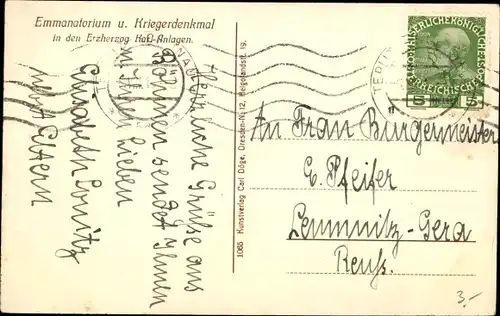 Emmanatorium u. Kriegerdenkmal
in den Erzherzog Karl-Anlagen.
Herzliche Grüße aus
Böhmen sendet Ihnen
u. Ihren Lieben
Elisabeth
nebst Eltern
1065 Kunstverlag Carl Döge, Dresden-N. 12, Helgolandstr. 19.
KAISERLICHE KÖNIGLICHE
ÖSTERREICHISCHE
5 5
An Frau Bürgermeister
E. Pfeifer
Leumnitz-Gera
Reuß.
3.-